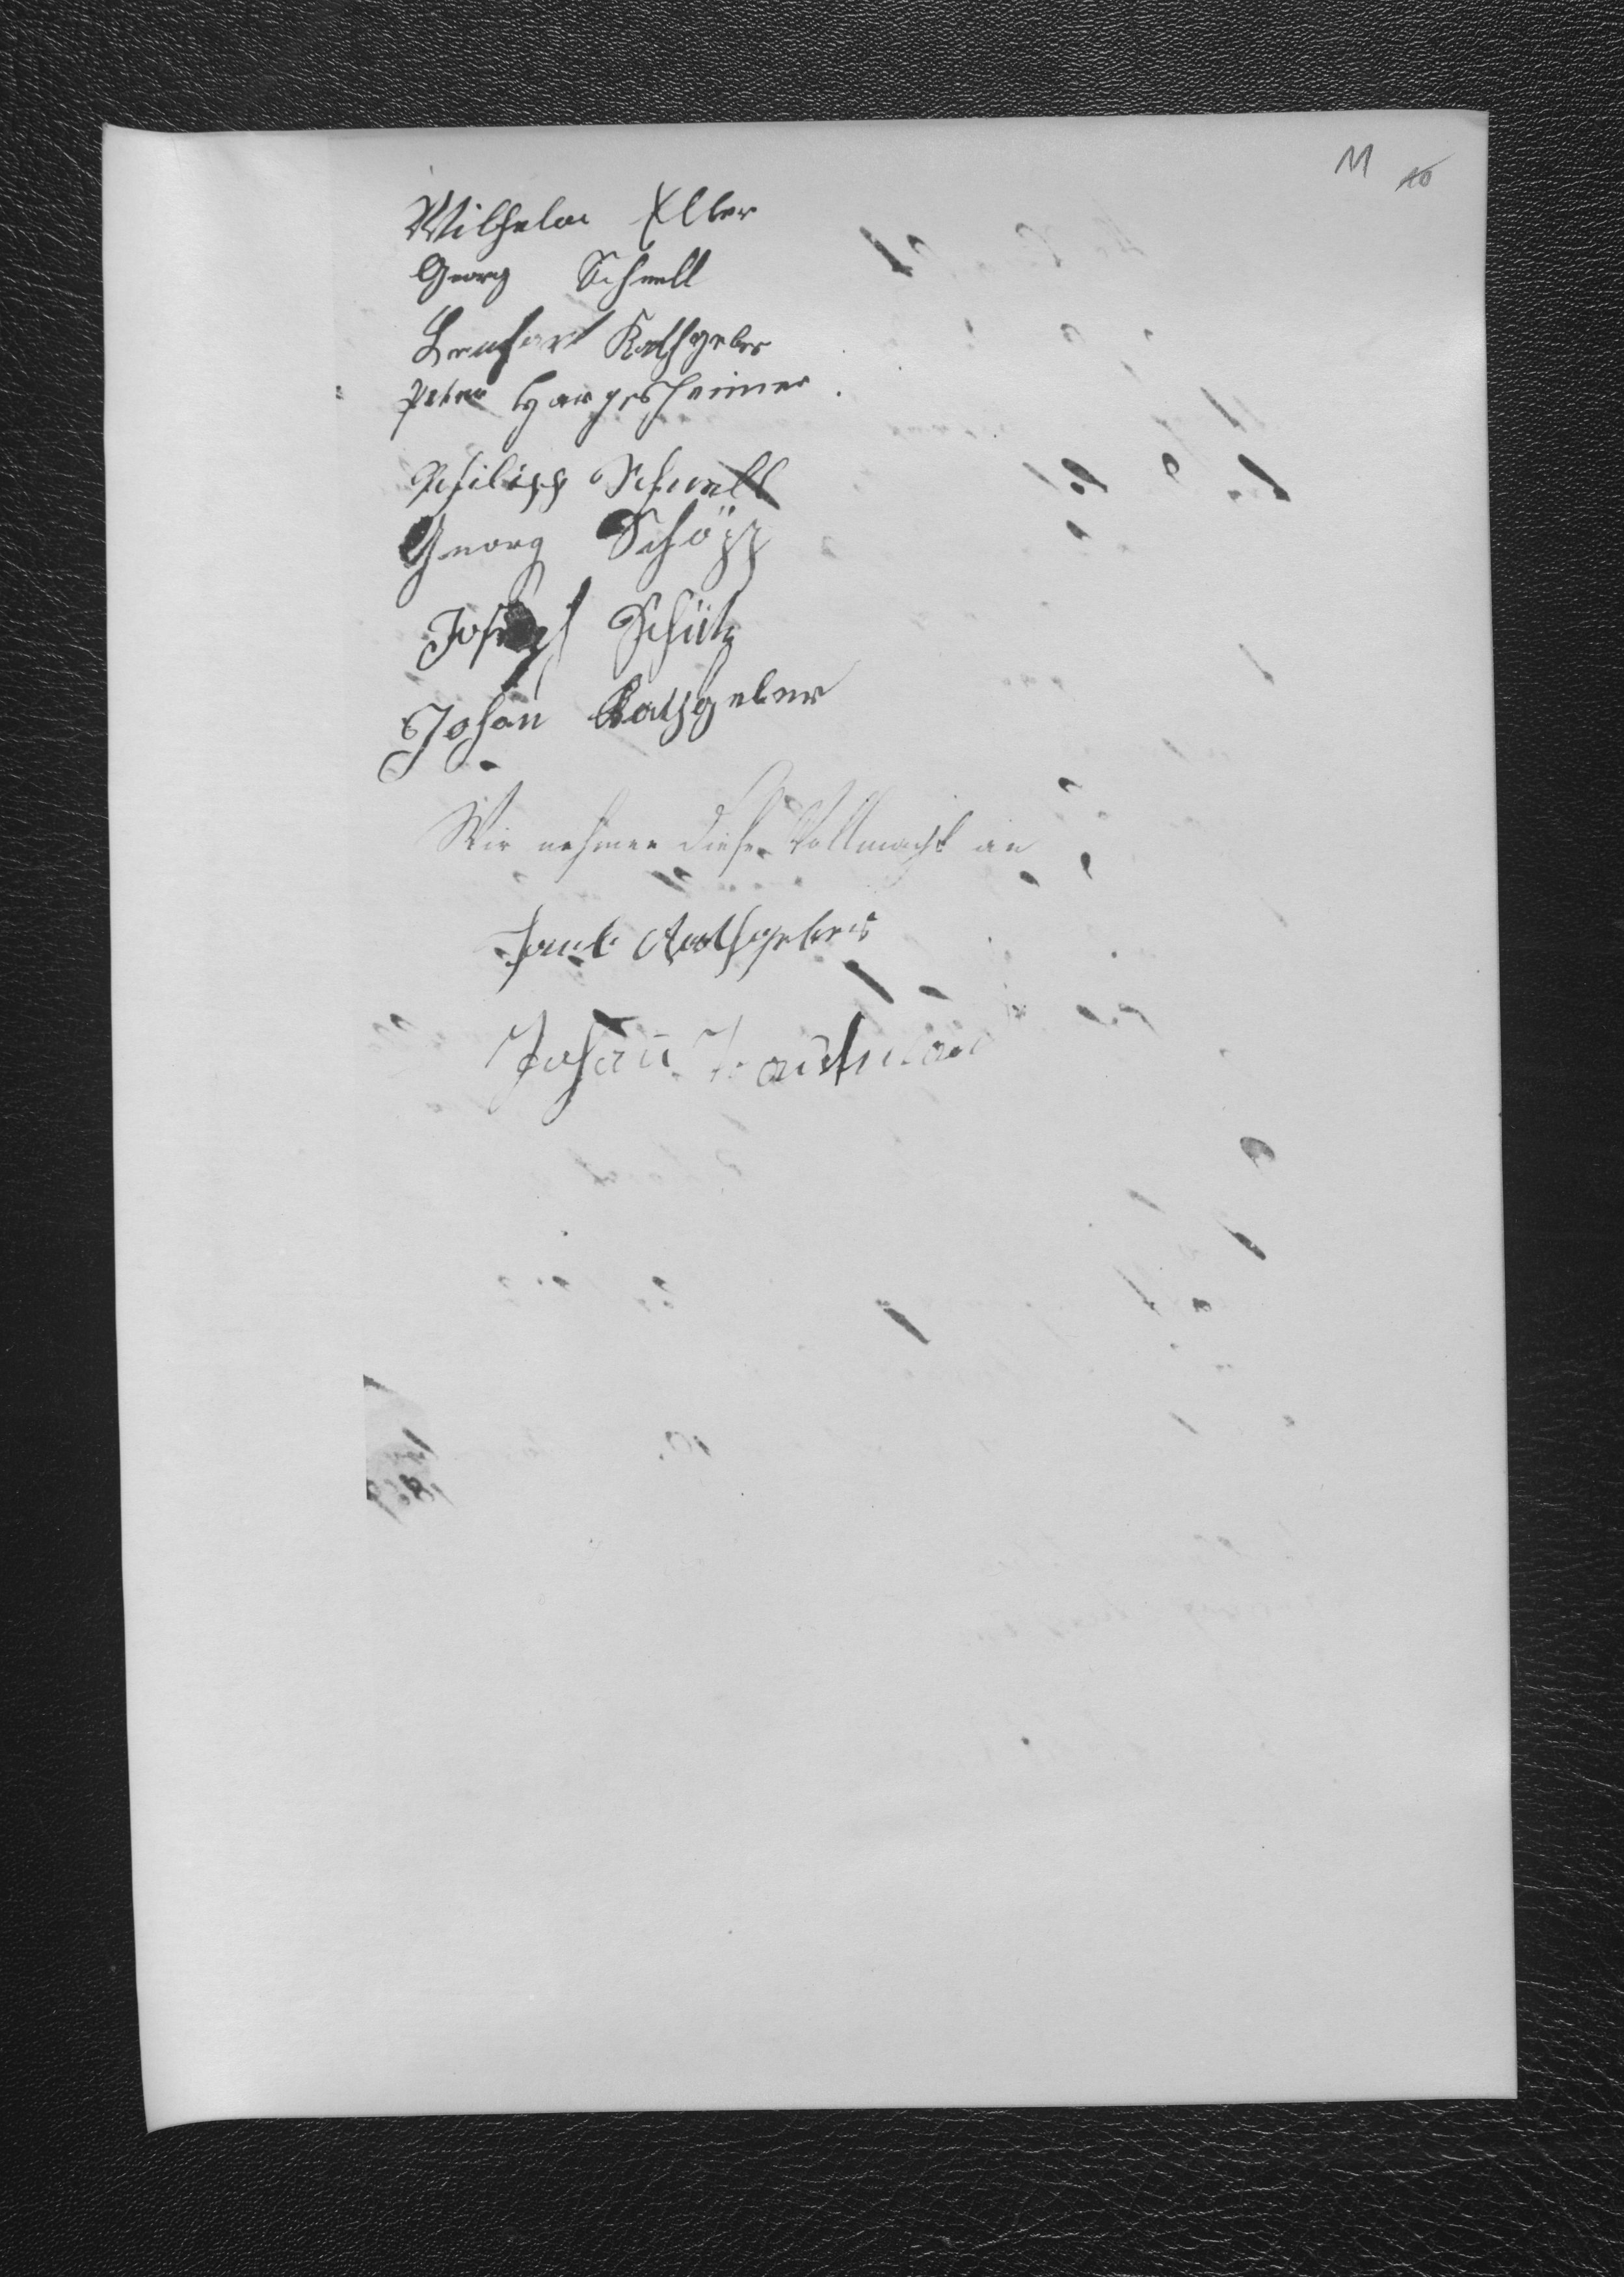 11 10
Wilhelm Eller
Georg Schnell
Lenhart Rathgeber
Peter Hargesheimer
Philipp Schnell
Georg Schöpp
Joseph Schütz
Johan Rathgeber
Wir nehmen diese Vollmacht an
Rathgeber
Johann